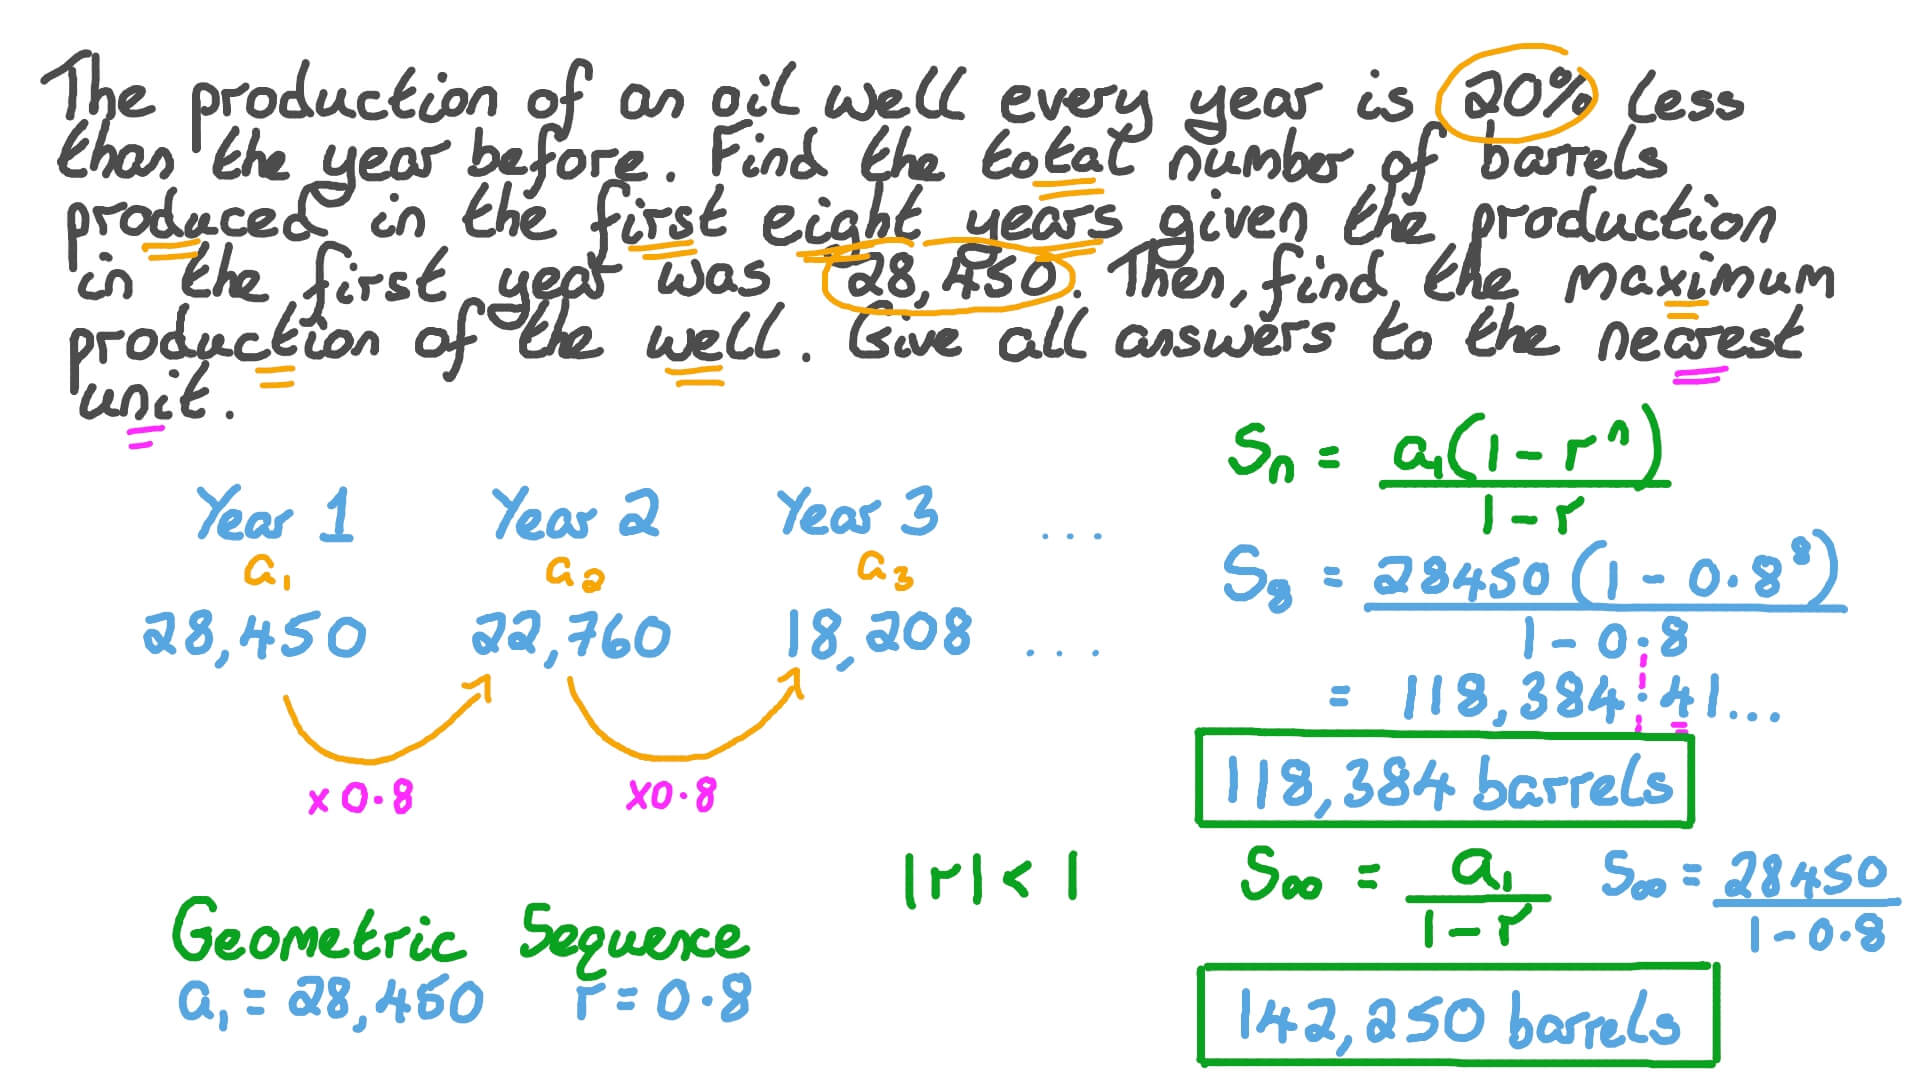 The production of an oil well every year is 20% less
than the year before. Find the total number of barrels
produced in the first eight years given the production
in the first year was 28,450. Then, find the maximum
production of the well. Give all answers to the nearest
unit.
Year 1 Year 2 Year 3 ...
a₁ a₂ a₃
28,450 22,760 18,208 ...
×0.8 ×0.8
Geometric Sequence
a₁ = 28,450 r = 0.8
|r| < 1
Sₙ = a₁(1 - rⁿ) / 1 - r
S₈ = 28450 (1 - 0.8⁸) / 1 - 0.8
= 118,384.41...
118,384 barrels
S∞ = a₁ / 1 - r S∞ = 28450 / 1 - 0.8
142,250 barrels